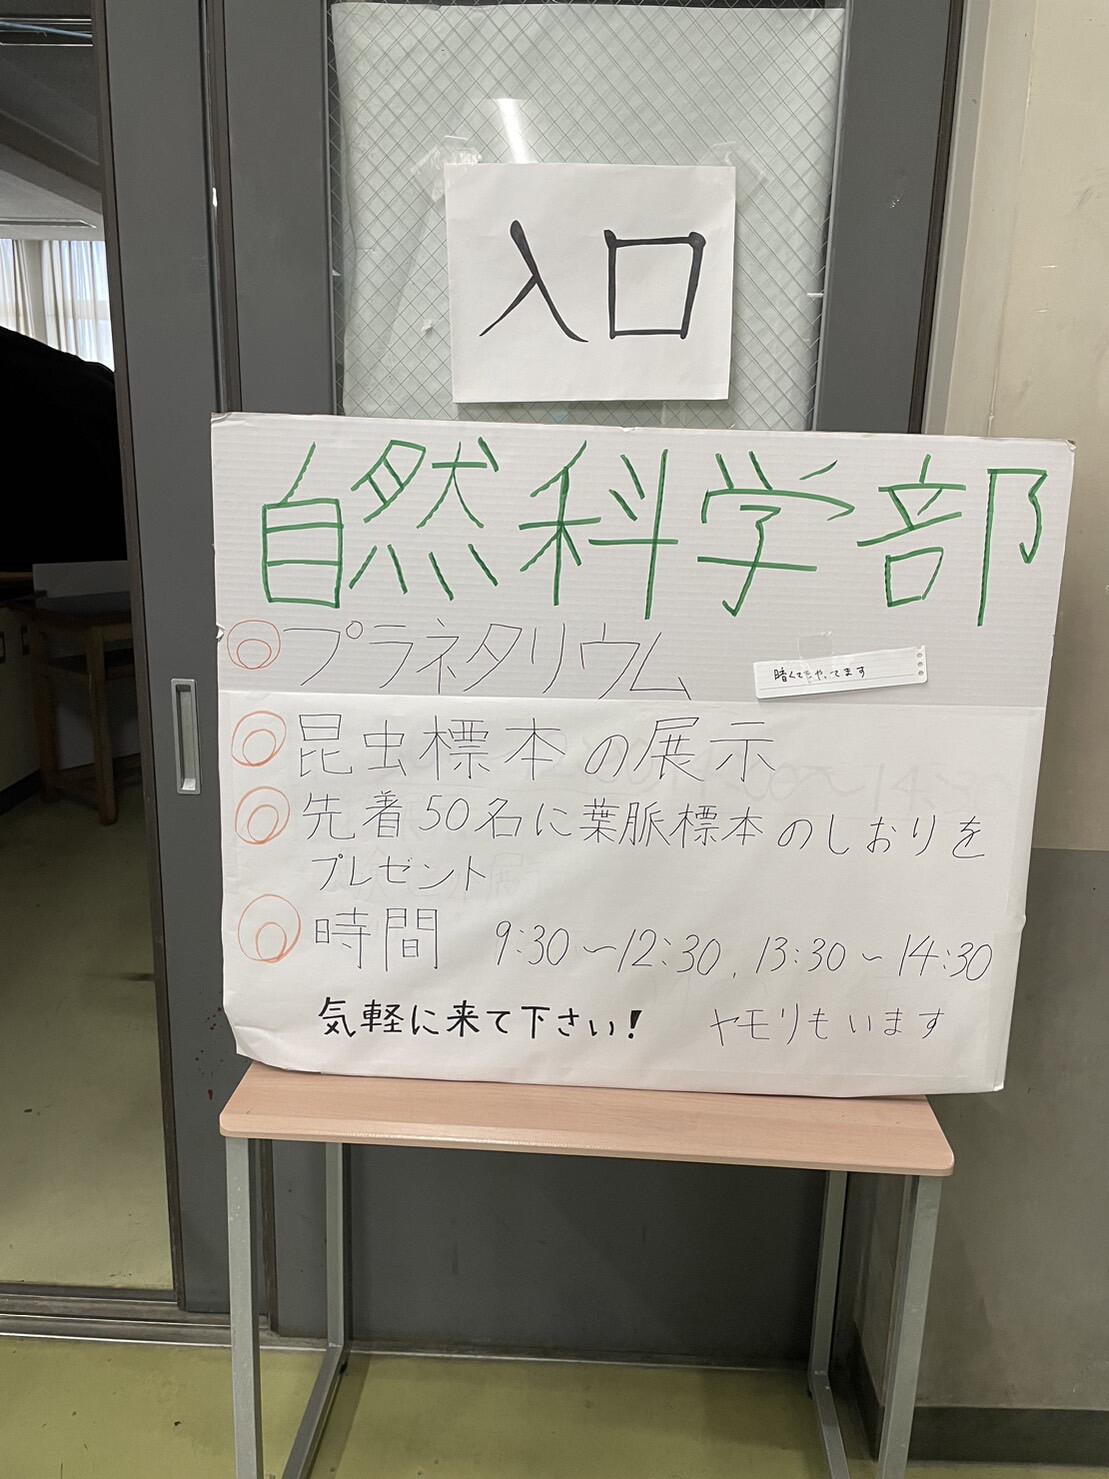 入口
自然科学部
プラネタリウム
暗くてもやってます
昆虫標本の展示
先着50名に葉脈標本のしおりを
プレゼント
時間 9:30〜12:30, 13:30〜14:30
気軽に来て下さい!
ヤモリもいます